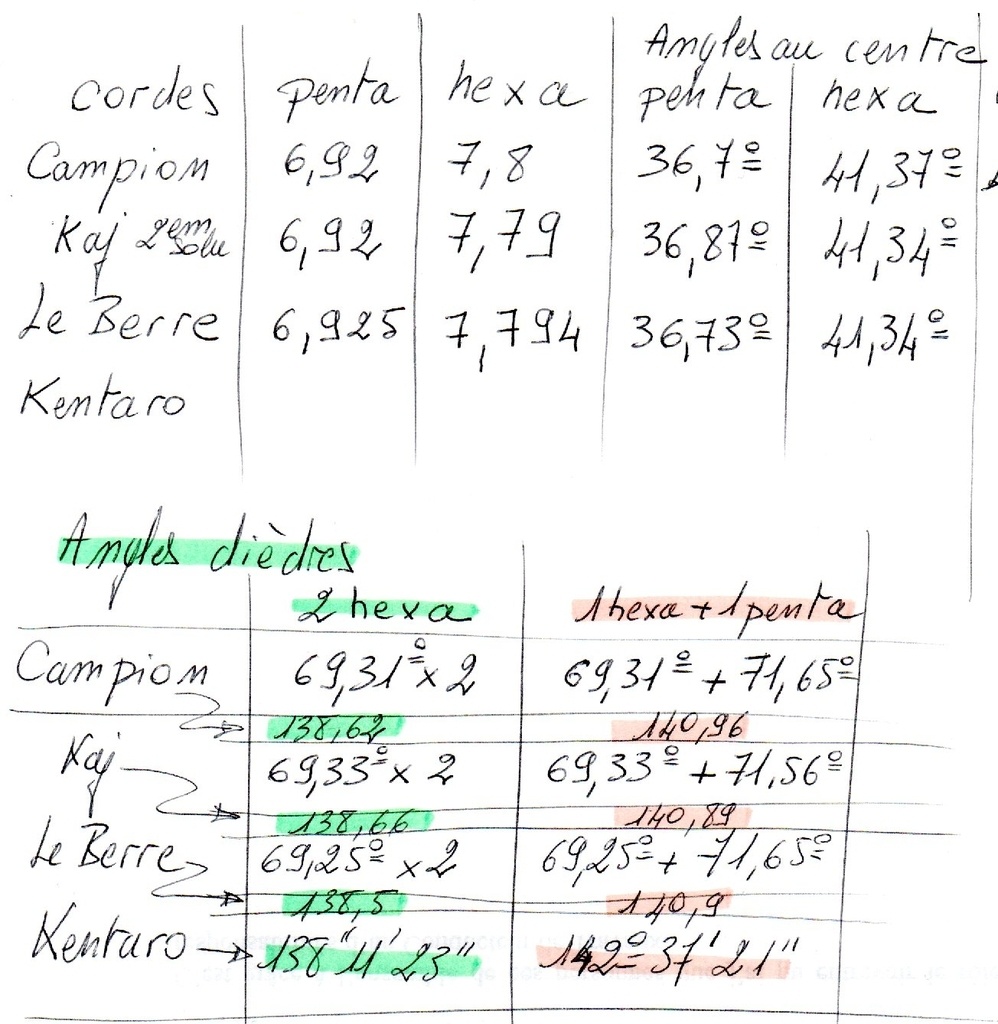 Angles au centre
cordes penta hexa penta hexa
Campion 6,92 7,8 36,7º 41,37º
Kaj 2em solu 6,92 7,79 36,87º 41,34º
Le Berre 6,925 7,794 36,73º 41,34º
Kentaro
Angles dièdres
2 hexa 1 hexa + 1 penta
Campion 69,31º x 2 69,31º + 71,65º
138,62 140,96
Kaj 69,33º x 2 69,33º + 71,56º
138,66 140,89
Le Berre 69,25º x 2 69,25º + 71,65º
138,5 140,9
Kentaro 138" 11' 23" 142º 37' 21"